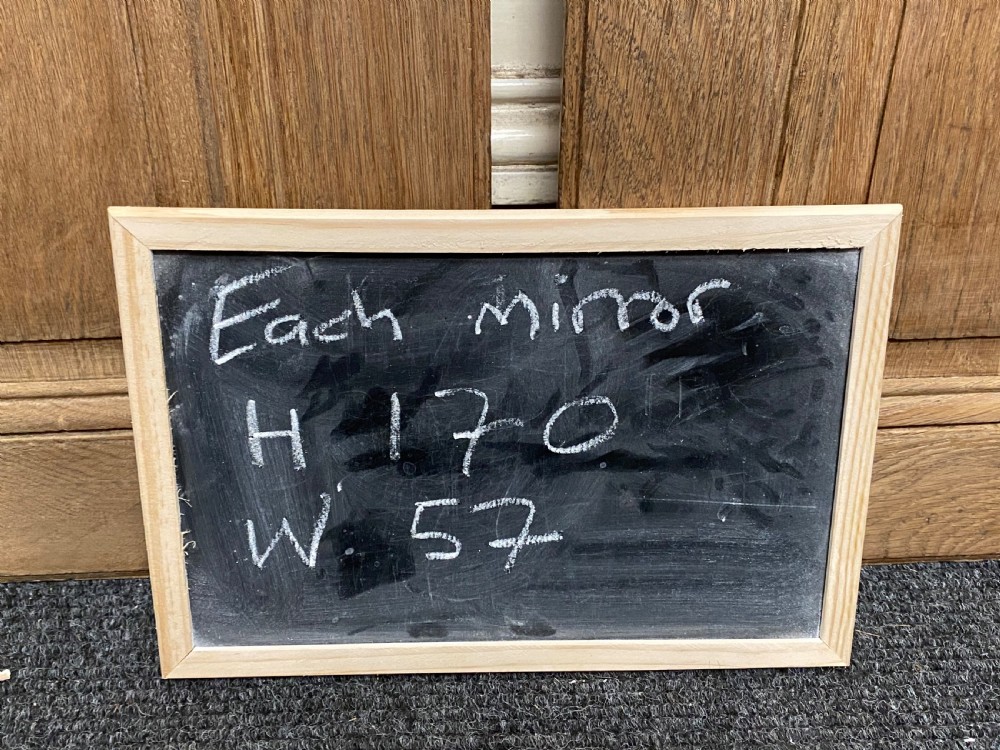 Each Mirror
H 170
W 57